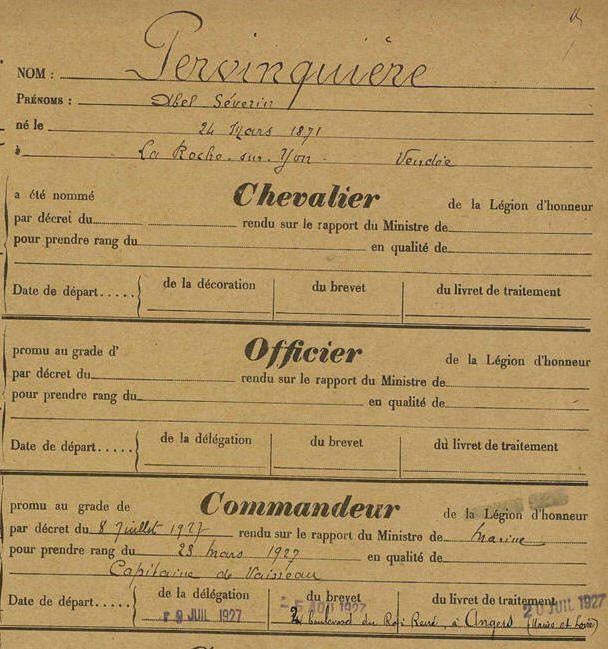 NOM : Pervinquière
PRÉNOMS : Abel Séverin
né le 24 Mars 1871
à La Roche-sur-Yon - Vendée
a été nommé Chevalier de la Légion d'honneur
par décret du rendu sur le rapport du Ministre de
pour prendre rang du en qualité de
Date de départ..... de la décoration du brevet du livret de traitement
promu au grade d' Officier de la Légion d'honneur
par décret du rendu sur le rapport du Ministre de
pour prendre rang du en qualité de
Date de départ..... de la délégation du brevet du livret de traitement
promu au grade de Commandeur de la Légion d'honneur
par décret du 8 Juillet 1927 rendu sur le rapport du Ministre de Marine
pour prendre rang du 23 Mars 1927 en qualité de
Capitaine de Vaisseau
Date de départ..... de la délégation du brevet du livret de traitement
9 JUIL 1927 5 AOU 1927 20 JUIL 1927
boulevard du Roi René, à Angers (Maine et Loire)